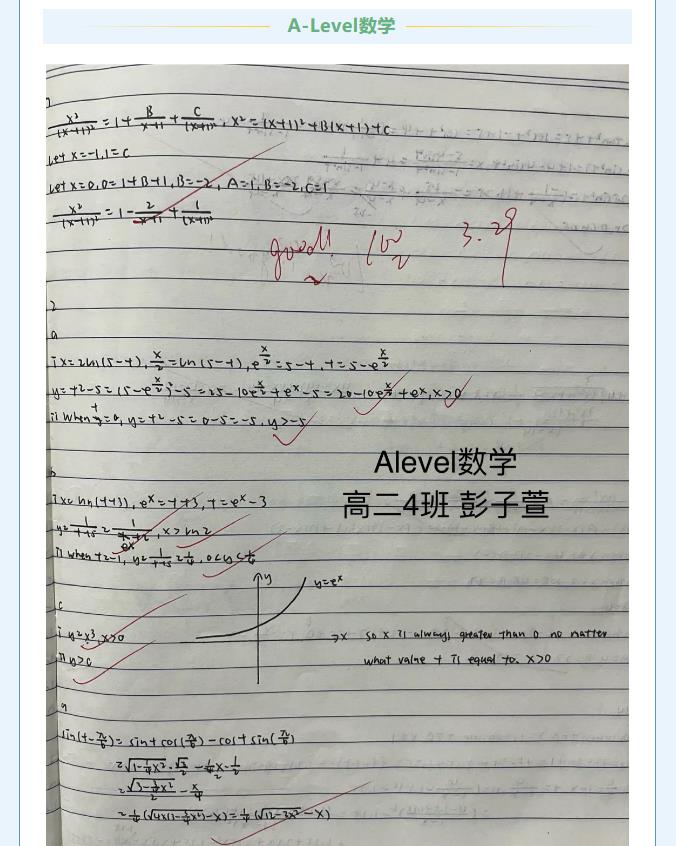 A-Level数学
1
x²/(x+1)² = 1 + B/(x+1) + C/(x+1)², x² = (x+1)² + B(x+1) + C
Let x=-1, 1=C
Let x=0, 0=1+B+1, B=-2, A=1, B=-2, C=1
x²/(x+1)² = 1 - 2/(x+1) + 1/(x+1)²
good! 100 3.29
2
a
i x=2ln(5-t), x/2=ln(5-t), e^(x/2)=5-t, t=5-e^(x/2)
y=t²-5=(5-e^(x/2))²-5=25-10e^(x/2)+e^x-5=20-10e^(x/2)+e^x, x>0
ii when t=0, y=t²-5=0-5=-5, y>-5
Alevel数学
高二4班 彭子萱
b
i x=ln(t+3), e^x=t+3, t=e^x-3
y=1/(t+5)=1/(e^x+2), x>ln2
ii when t=-1, y=1/(t+5)=1/4, 0<y<1/4
y
y=e^x
c
i y=x³, x>0
→x so x is always greater than 0 no matter
ii y>0
what value t is equal to. x>0
sin(t-π/6)=sint cos(π/6)-cost sin(π/6)